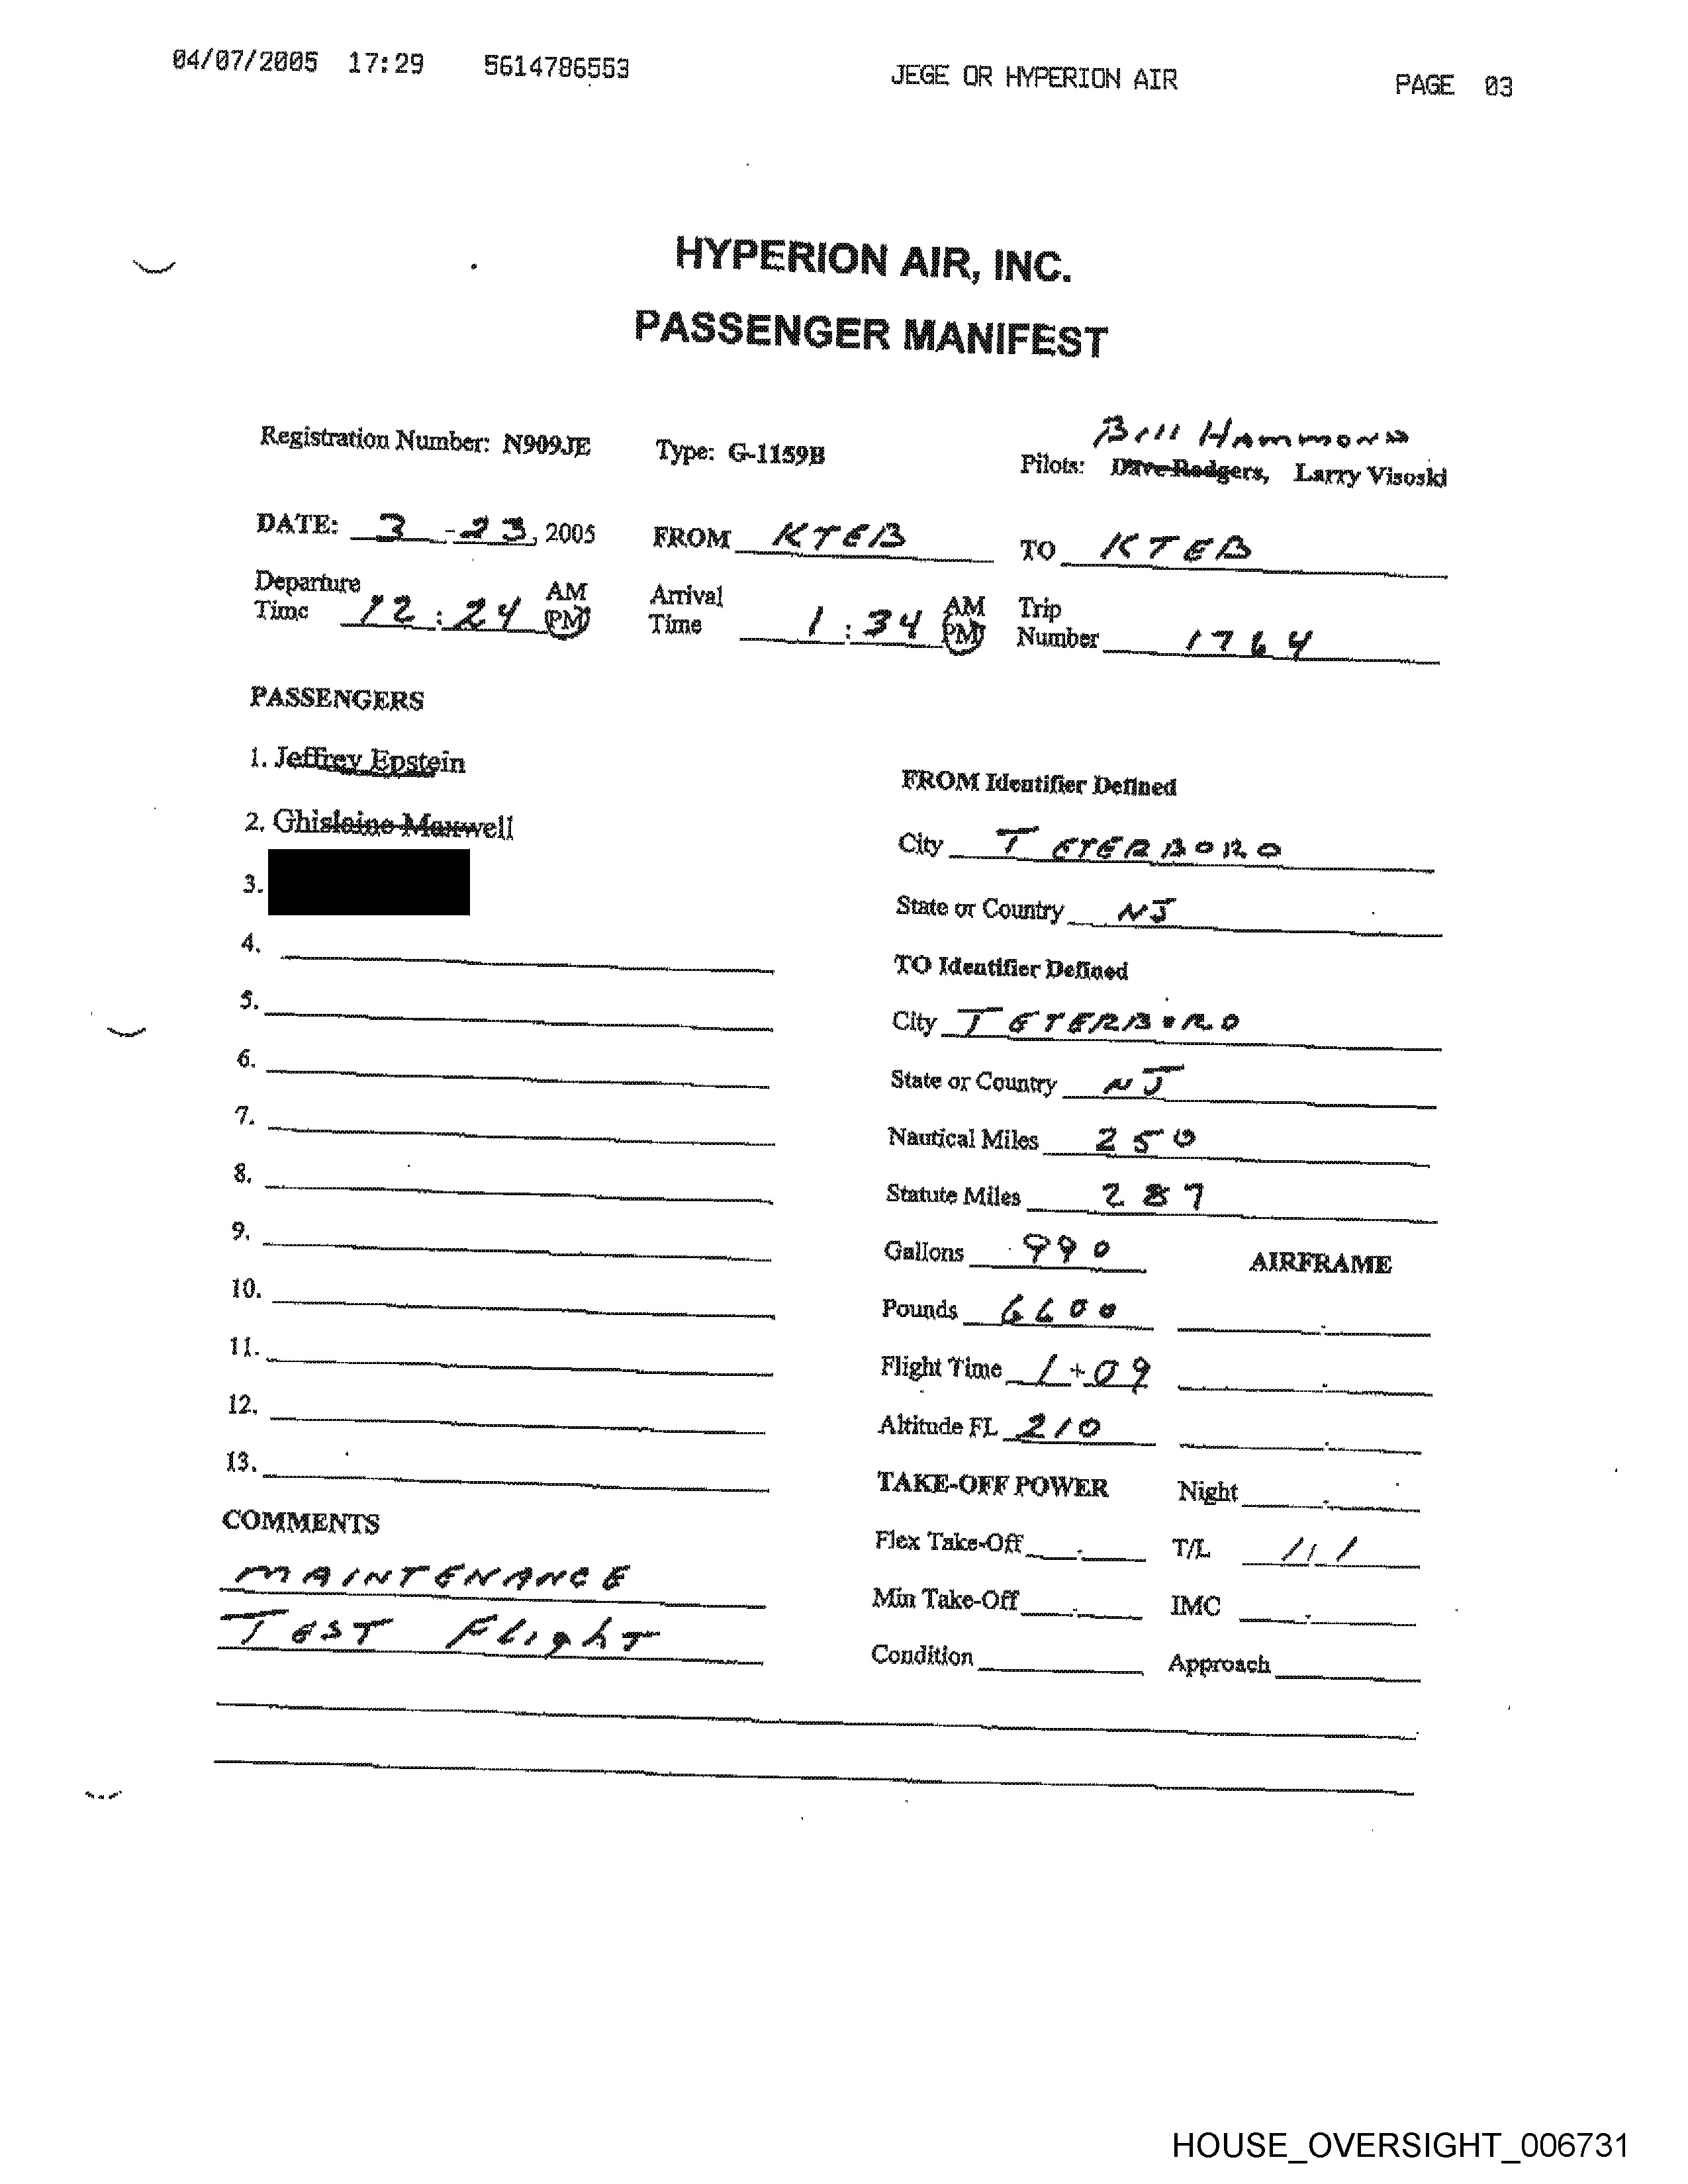 04/07/2005 17:29 5614786553 JEGE OR HYPERION AIR PAGE 03
HYPERION AIR, INC.
PASSENGER MANIFEST
Bill Hammond
Registration Number: N909JE Type: G-1159B Pilots: Dave Rodgers, Larry Visoski
DATE: 3 - 23, 2005 FROM KTEB TO KTEB
Departure Time 12:24 AM PM Arrival Time 1:34 AM PM Trip Number 1764
PASSENGERS
1. Jeffrey Epstein
FROM Identifier Defined
2. Ghislaine Maxwell
City TETERBORO
3.
State or Country NJ
4.
TO Identifier Defined
5.
City TETERBORO
6.
State or Country NJ
7.
Nautical Miles 250
8.
Statute Miles 287
9.
Gallons 990 AIRFRAME
10.
Pounds 6600
11.
Flight Time 1+09
12.
Altitude FL 210
13.
TAKE-OFF POWER Night
COMMENTS
Flex Take-Off T/L 1/1
MAINTENANCE
Min Take-Off IMC
TEST Flight
Condition Approach
HOUSE_OVERSIGHT_006731